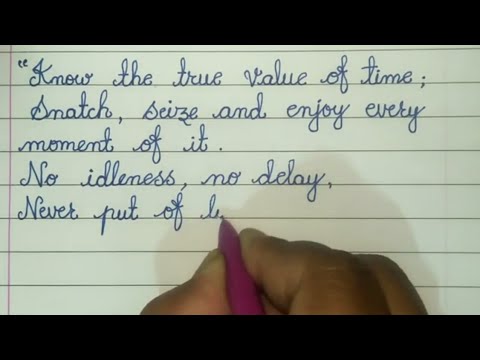 "Know the true value of time;
Snatch, seize and enjoy every
moment of it.
No idleness, no delay,
Never put of